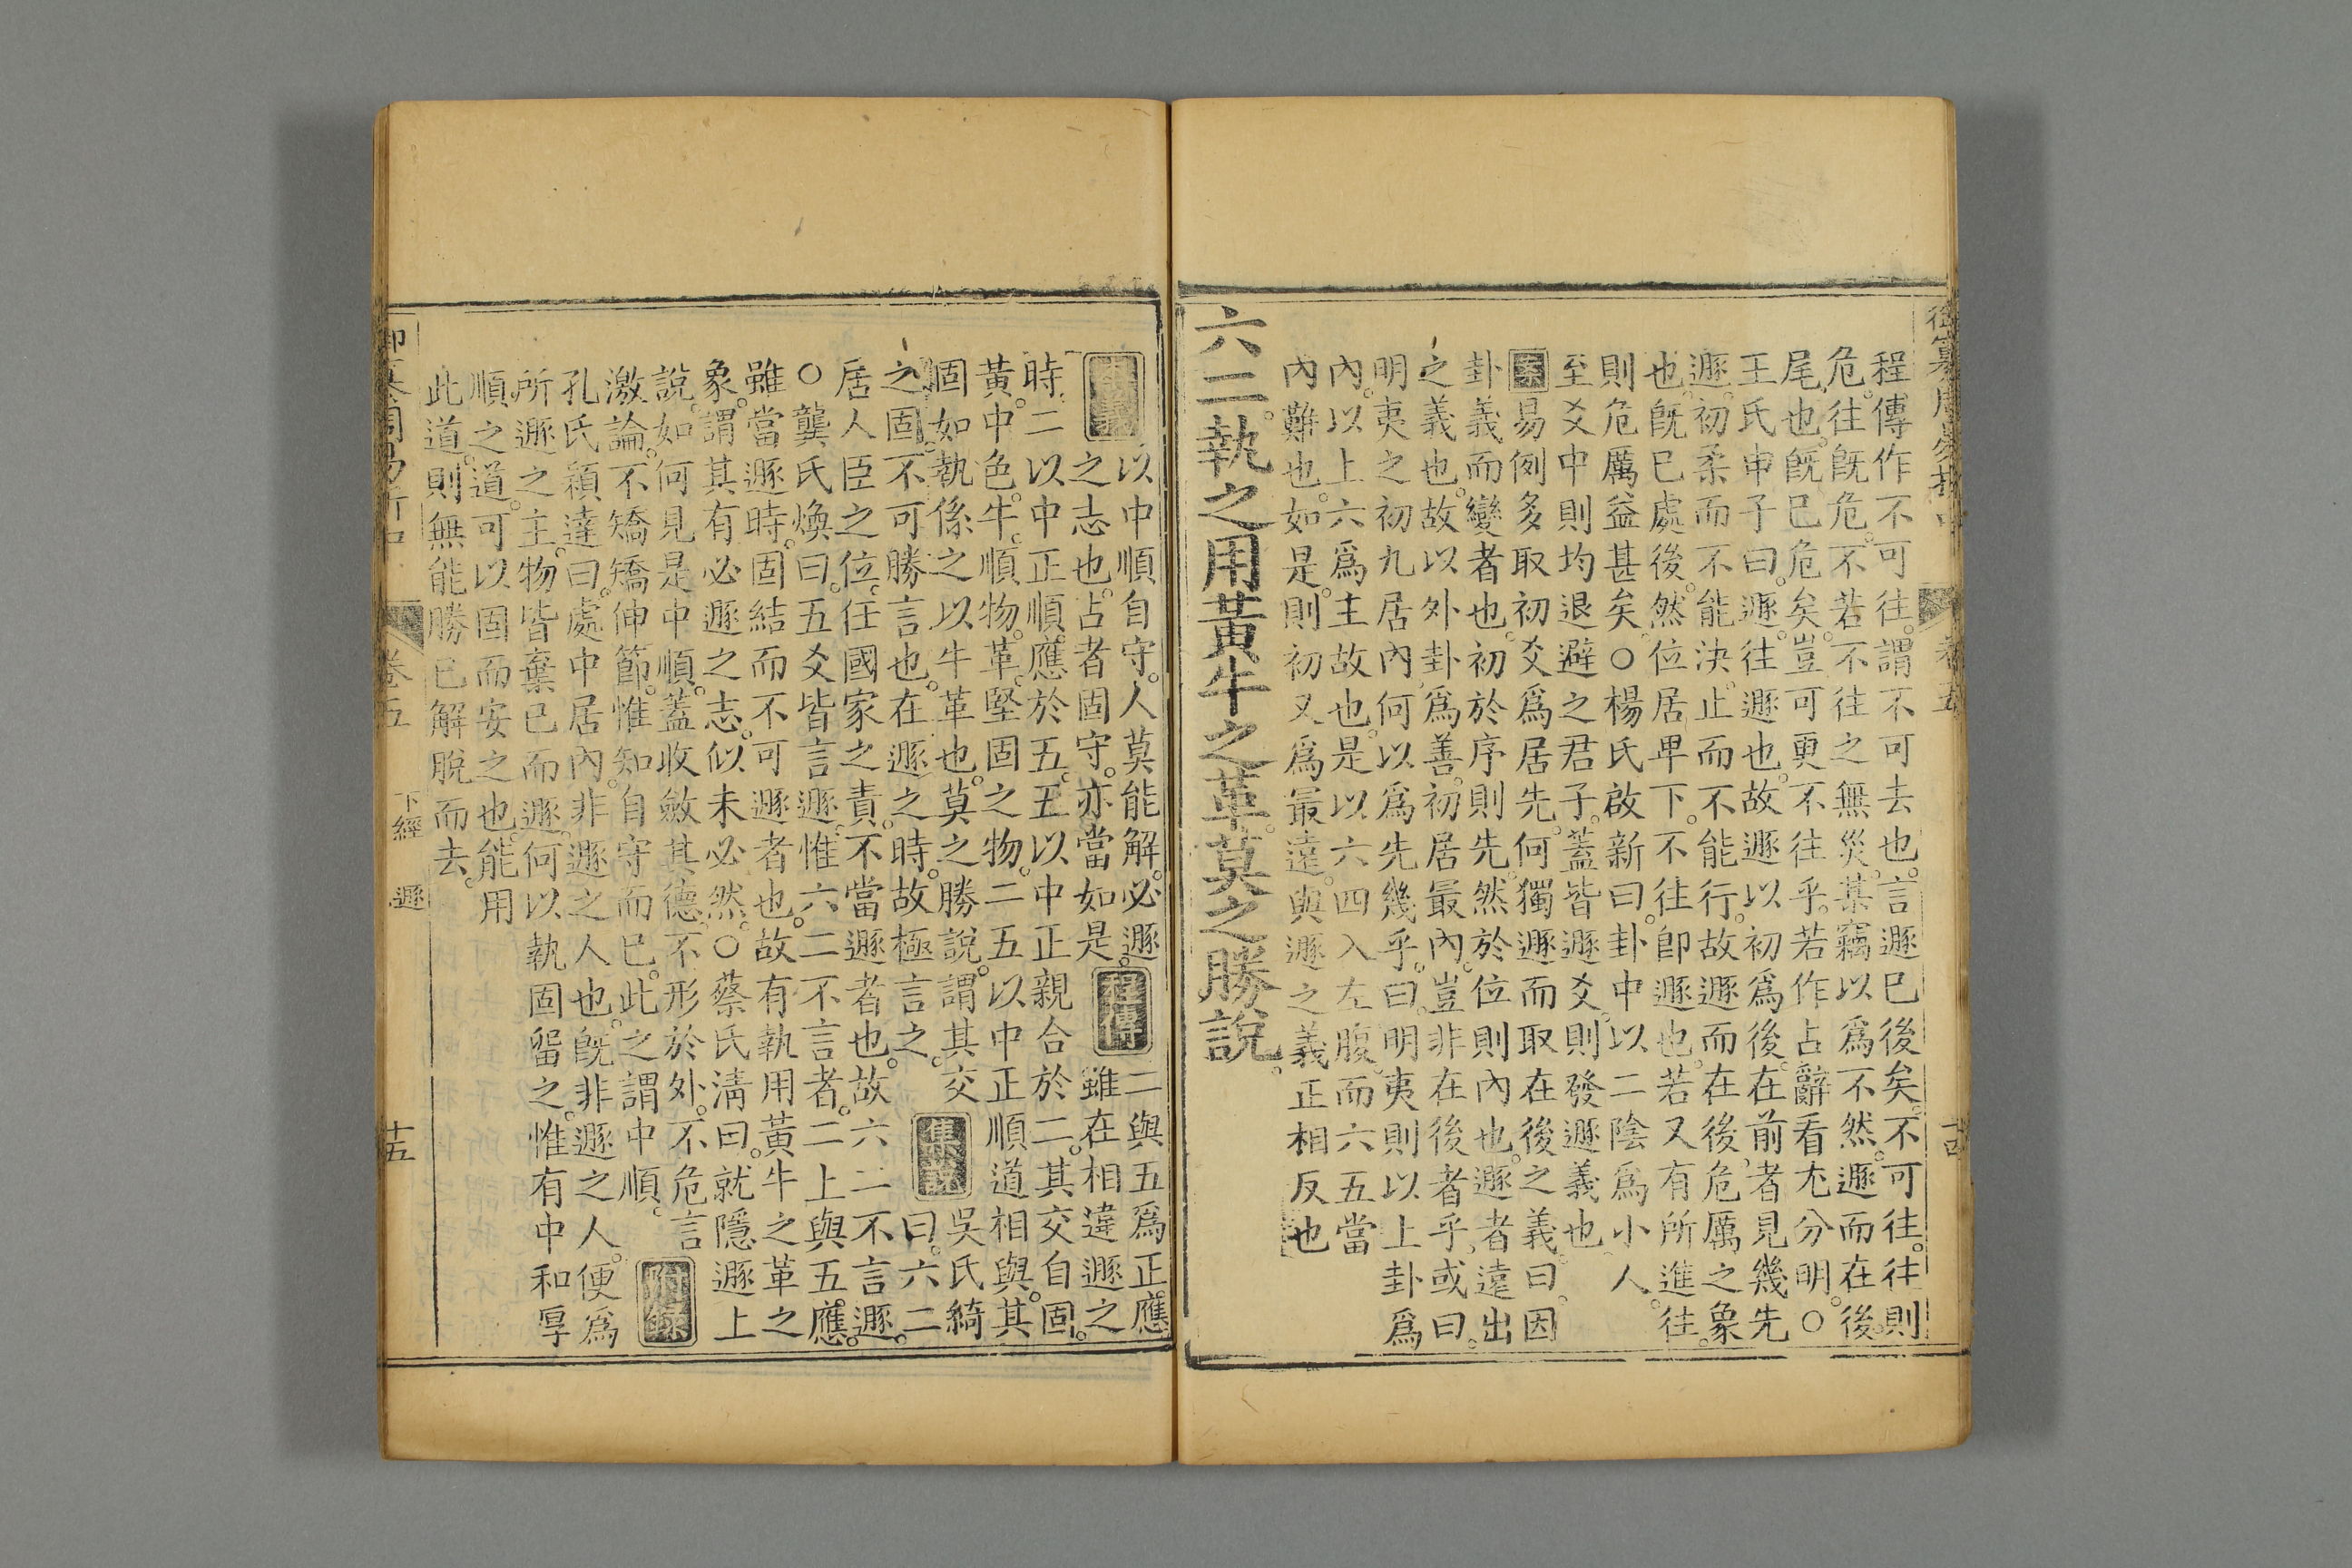 御纂周易折中 卷五 十四
程傳作不可往。謂不可去也。言遯已後矣。不可往。往則
危。往旣危。不若不往之無災。某竊以爲不然。遯而在後。
尾也。旣已危矣。豈可更不往乎。若作占辭看尤分明。○
王氏申子曰。遯。往遯也。故遯以初爲後。在前者見幾先
遯。初柔而不能決。止而不能行。故遯而在後。危厲之象
也。旣已處後。然位居卑下。不往卽遯也。若又有所進往。
則危厲益甚矣。○楊氏啟新曰。卦中以二陰爲小人。
至爻中則均退避之君子。蓋皆遯爻。則發遯義也。
案易例多取初爻爲居先。何獨遯而取在後之義。曰。因
卦義而變者也。初於序則先。然於位則內也。遯者遠出
之義也。故以外卦爲善。初居最內。豈非在後者乎。或曰。
明夷之初九居內。何以爲先幾乎。曰。明夷則以上卦爲
內。以上六爲主故也。是以六四入左腹。而六五當
內難也。如是。則初又爲最遠。與遯之義正相反也
六二。執之用黃牛之革。莫之勝說。
本義 以中順自守。人莫能解。必遯
之志也。占者固守。亦當如是。
程傳 二與五爲正應
雖在相違遯之
時。二以中正順應於五。五以中正親合於二。其交自固。
黃。中色。牛。順物。革。堅固之物。二五以中正順道相與。其
固如執係之以牛革也。莫之勝說。謂其交
之固。不可勝言也。在遯之時。故極言之。
集說 吳氏綺
曰。六二
居人臣之位。任國家之責。不當遯者也。故六二不言遯。
○龔氏煥曰。五爻皆言遯。惟六二不言者。二上與五應。
雖當遯時。固結而不可遯者也。故有執用黃牛之革之
象。謂其有必遯之志。似未必然。○蔡氏淸曰。就隱遯上
說。如何見是中順。蓋收斂其德。不形於外。不危言
激論。不矯矯伸節。惟知自守而已。此之謂中順。
附錄
孔氏穎達曰。處中居內。非遯之人也。旣非遯之人。便爲
所遯之主。物皆棄已而遯。何以執固留之。惟有中和厚
順之道。可以固而安之也。能用
此道。則無能勝已解脫而去。
御纂周易折中 卷五 下經 遯 十五